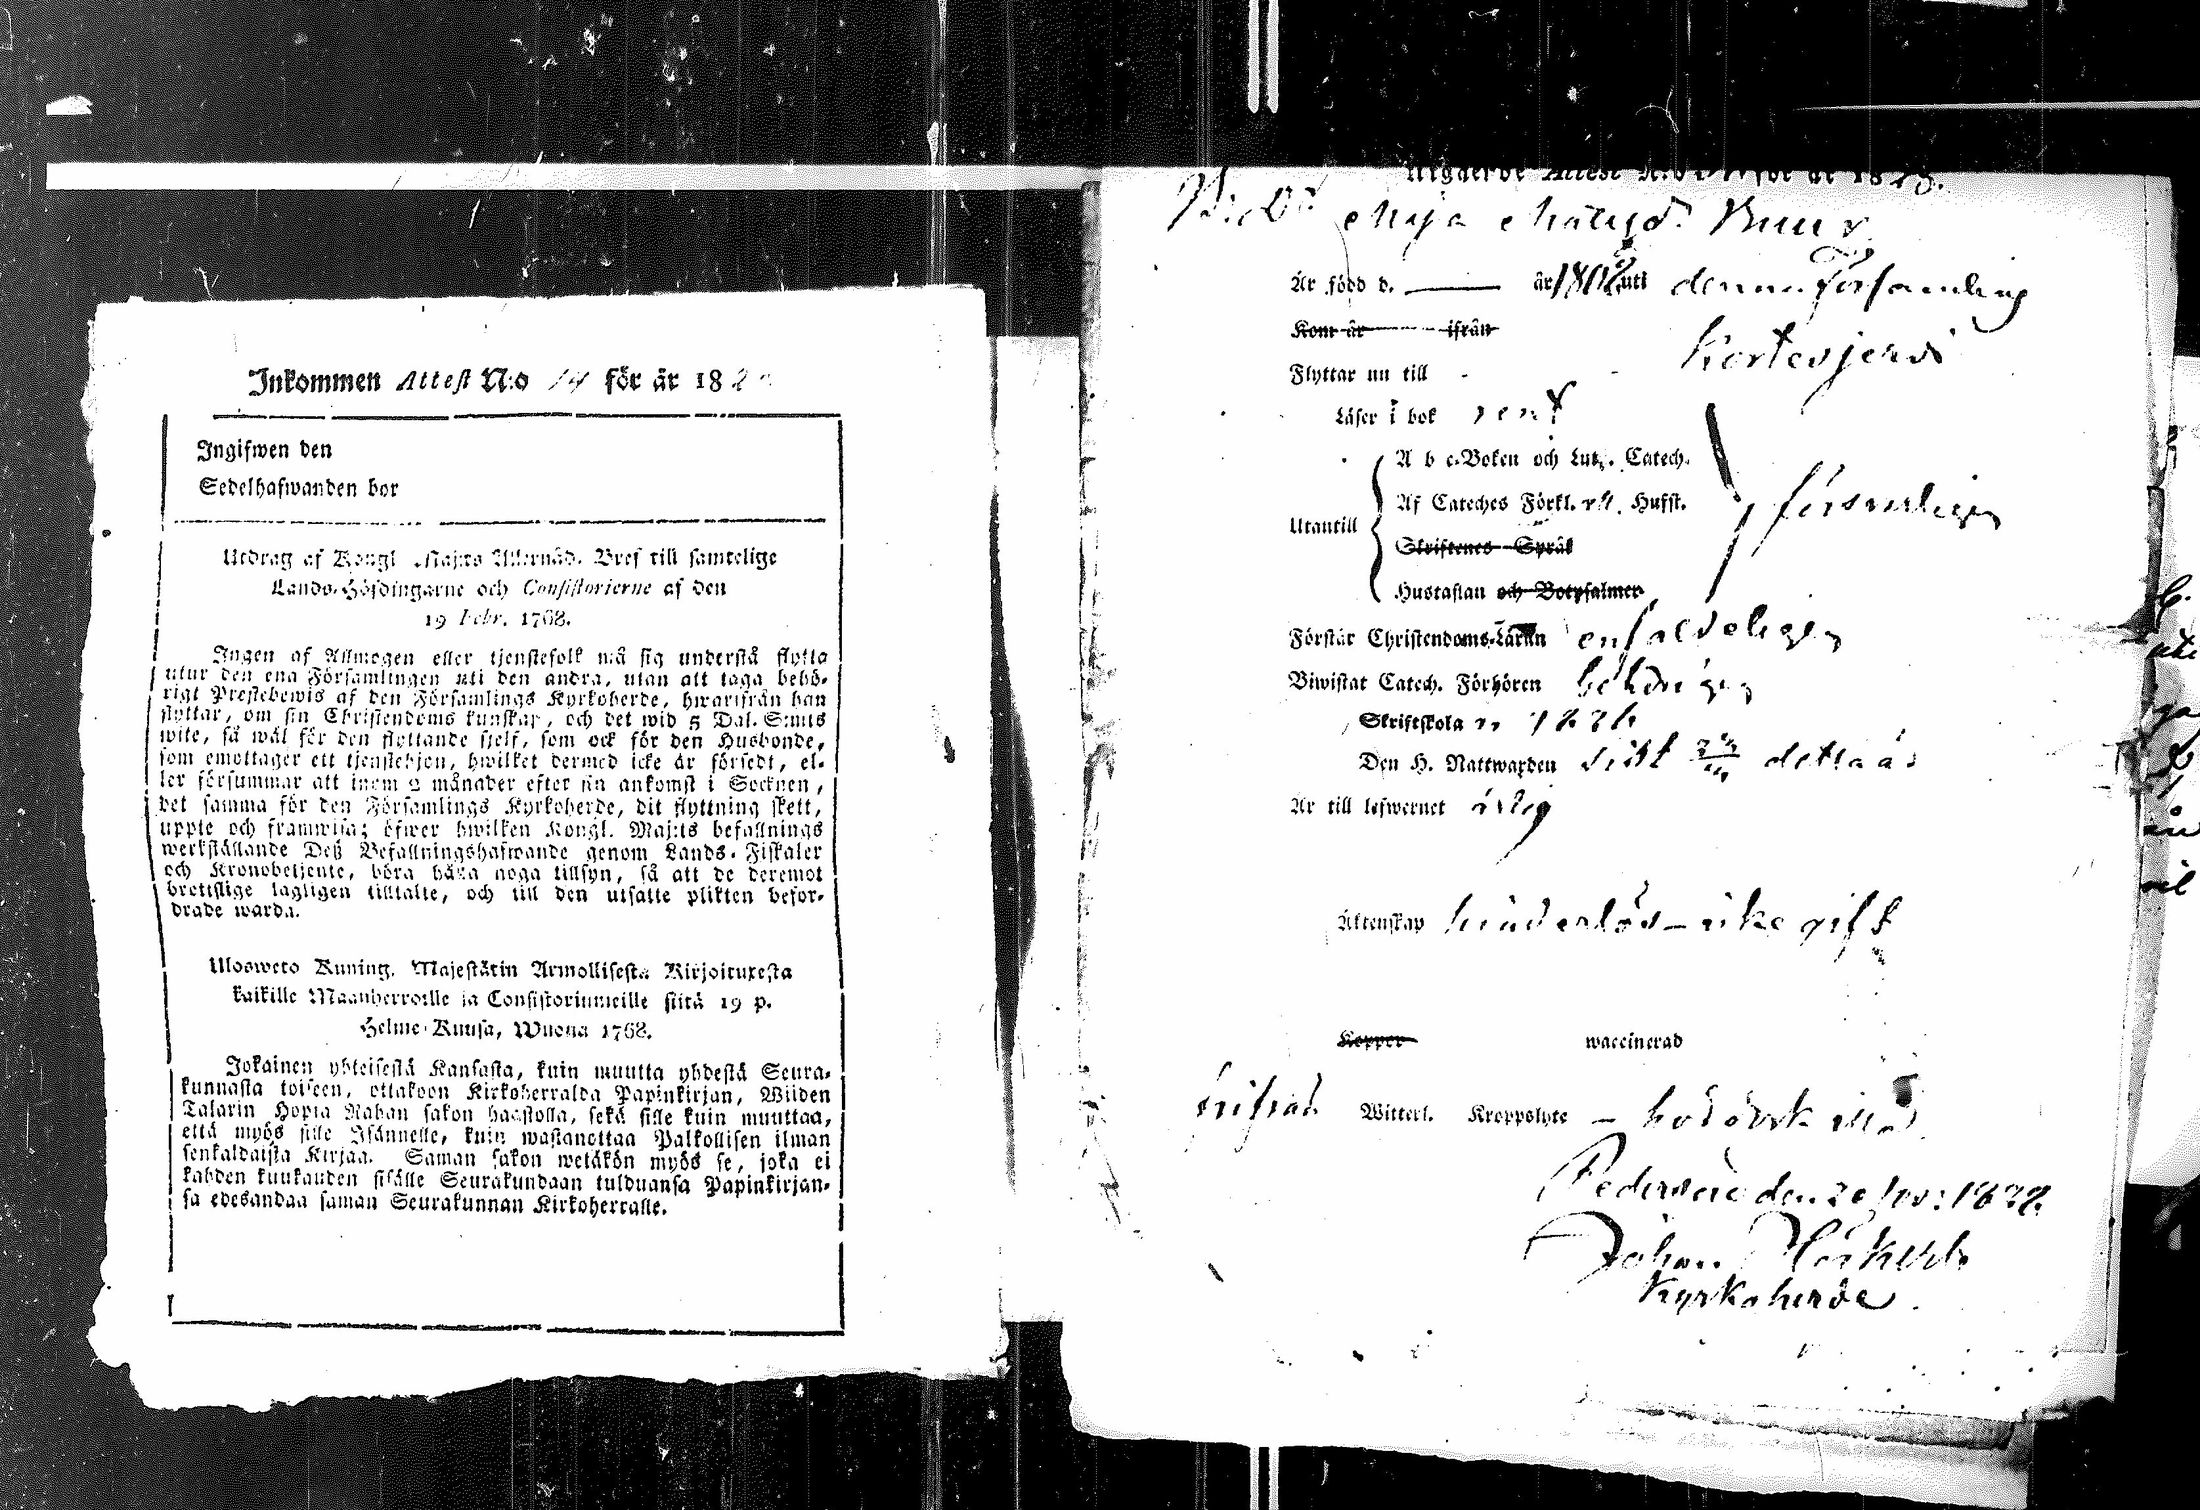 Inkommen Attest N:o 14 för år 182
Ingifwen den
Sedelhafwanden bor
Utdrag af Kongl. Maj:ts Allernåd. Bref till samtelige
Lands-Höfdingarne och Consistorierne af den
19 Febr. 1768.
Ingen af Allmogen eller tjenstefolk må sig understå flytta
utur den ena Församlingen uti den andra, utan att taga behö-
rigt Prestebewis af den Församlings Kyrkoherde, hwarifrån han
flyttar, om sin Christendoms kunskap, och det wid 5 Dal. S:mts
wite, så wäl för den flyttande sjelf, som ock för den Husbonde,
som emottager ett tjenstehjon, hwilket dermed icke är försedt, el-
ler försummar att inom 2 månader efter sin ankomst i Socknen,
det samma för den Församlings Kyrkoherde, dit flyttning skett,
uppte och framwisa; öfwer hwilken Kongl. Maj:ts befallnings
werkställande Deß Befallningshafwande genom Lands-Fiskaler
och Kronobetjente, böra hålla noga tillsyn, så att de deremot
brottslige lagligen tilltalte, och till den utsatte plikten befor-
drade warda.
Ulosweto Kuning. Majestätin Armollisesta Kirjoituxesta
kaikille Maanherroille ja Consistoriumeille siitä 19 p.
Helme-Kuusa, Wuona 1768.
Jokainen yhteisestä Kansasta, kuin muutta yhdestä Seura-
kunnasta toiseen, ottakoon Kirkoherralda Papinkirjan, Wiiden
Talarin Hopia Rahan sakon haastolla, sekä sille kuin muuttaa,
että myös sille Isännelle, kuin wastanottaa Palkollisen ilman
senkaldaista Kirjaa. Saman sakon wetäkön myös se, joka ei
kahden kuukauden sisälle Seurakundaan tulduansa Papinkirjan-
sa edesandaa saman Seurakunnan Kirkoherralle.
Utgaende Attest N:o för år 1828.
Maja Matsd:r
Är född d. — år 1802 uti denna Församling
Kom år ifrån
Flyttar nu till Kortesjervi
Läser i bok rent
A b c-Boken och Lut. Catech.
Af Cateches Förkl. Husst.
Utantill försvarligen
Skriftenes Språk
Hustaflan och Botpsalmer
Förstår Christendoms-Läran enfaldeligen
Biwistat Catech. Förhören behörigen
Skriftskola
Den H. Nattwarden sist detta år
Är till lefwernet ärlig
Äktenskap hinderlös – icke gift
Koppor waccinerad
Witterl. Kroppslyte –
Pedersöre den 20 Nov: 1828
Johan
Kyrkoherde.